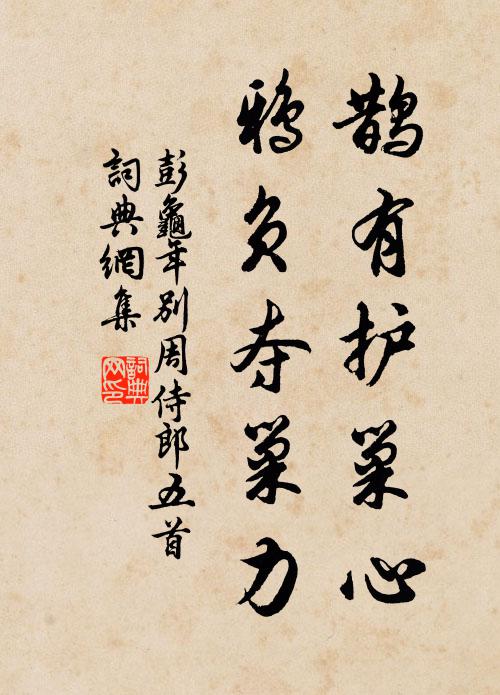 鹊有护巢心
鸦负夺巢力
彭龜年别周侍郎五首
詞典網集
詞典
网印